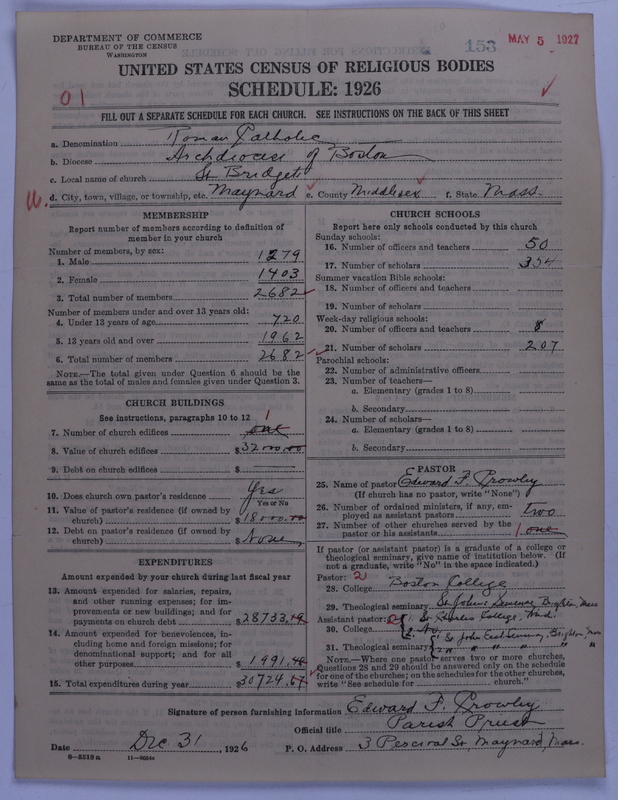 DEPARTMENT OF COMMERCE
BUREAU OF THE CENSUS
WASHINGTON
153
MAY 5 1927
UNITED STATES CENSUS OF RELIGIOUS BODIES
SCHEDULE: 1926
01
FILL OUT A SEPARATE SCHEDULE FOR EACH CHURCH. SEE INSTRUCTIONS ON THE BACK OF THIS SHEET
a. Denomination Roman Catholic
b. Diocese Archdiocese of Boston
c. Local name of church St Bridget
d. City, town, village, or township, etc. Maynard e. County Middlesex f. State Mass.
MEMBERSHIP
Report number of members according to definition of member in your church
Number of members, by sex:
1. Male 1279
2. Female 1403
3. Total number of members 2682
Number of members under and over 13 years old:
4. Under 13 years of age 720
5. 13 years old and over 1962
6. Total number of members 2682
NOTE.—The total given under Question 6 should be the
same as the total of males and females given under Question 3.
CHURCH BUILDINGS
See instructions, paragraphs 10 to 12
7. Number of church edifices one 1
8. Value of church edifices $
9. Debt on church edifices $
10. Does church own pastor's residence Yes
Yes or No
11. Value of pastor's residence (if owned by
church) $
12. Debt on pastor's residence (if owned by
church) $ None
EXPENDITURES
Amount expended by your church during last fiscal year
13. Amount expended for salaries, repairs,
and other running expenses; for im-
provements or new buildings; and for
payments on church debt $28733.19
14. Amount expended for benevolences, in-
cluding home and foreign missions; for
denominational support; and for all
other purposes $1991.48
15. Total expenditures during year $30724.67
CHURCH SCHOOLS
Report here only schools conducted by this church
Sunday schools:
16. Number of officers and teachers 50
17. Number of scholars 354
Summer vacation Bible schools:
18. Number of officers and teachers
19. Number of scholars
Week-day religious schools:
20. Number of officers and teachers 8
21. Number of scholars 207
Parochial schools:
22. Number of administrative officers
23. Number of teachers—
a. Elementary (grades 1 to 8)
b. Secondary
24. Number of scholars—
a. Elementary (grades 1 to 8)
b. Secondary
PASTOR
25. Name of pastor Edward F. Crowley
(If church has no pastor, write "None")
26. Number of ordained ministers, if any, em-
ployed as assistant pastors two
27. Number of other churches served by the
pastor or his assistants 1 one
If pastor (or assistant pastor) is a graduate of a college or
theological seminary, give name of institution below. (If
not a graduate, write "No" in the space indicated.)
Pastor: 2
28. College Boston College
29. Theological seminary St. John's Seminary, Brighton, Mass
Assistant pastor: 2
30. College 1. St Charles College, Md. 2. No
31. Theological seminary 1. St. John Eccl. Seminary, Brighton, Mass 2. " " " " "
NOTE.—Where one pastor serves two or more churches,
Questions 28 and 29 should be answered only on the schedule
for one of the churches; on the schedules for the other churches,
write "See schedule for church."
Signature of person furnishing information Edward F. Crowley
Official title Parish Priest
Date Dec. 31, 1926 P. O. Address 3 Percival St, Maynard, Mass.